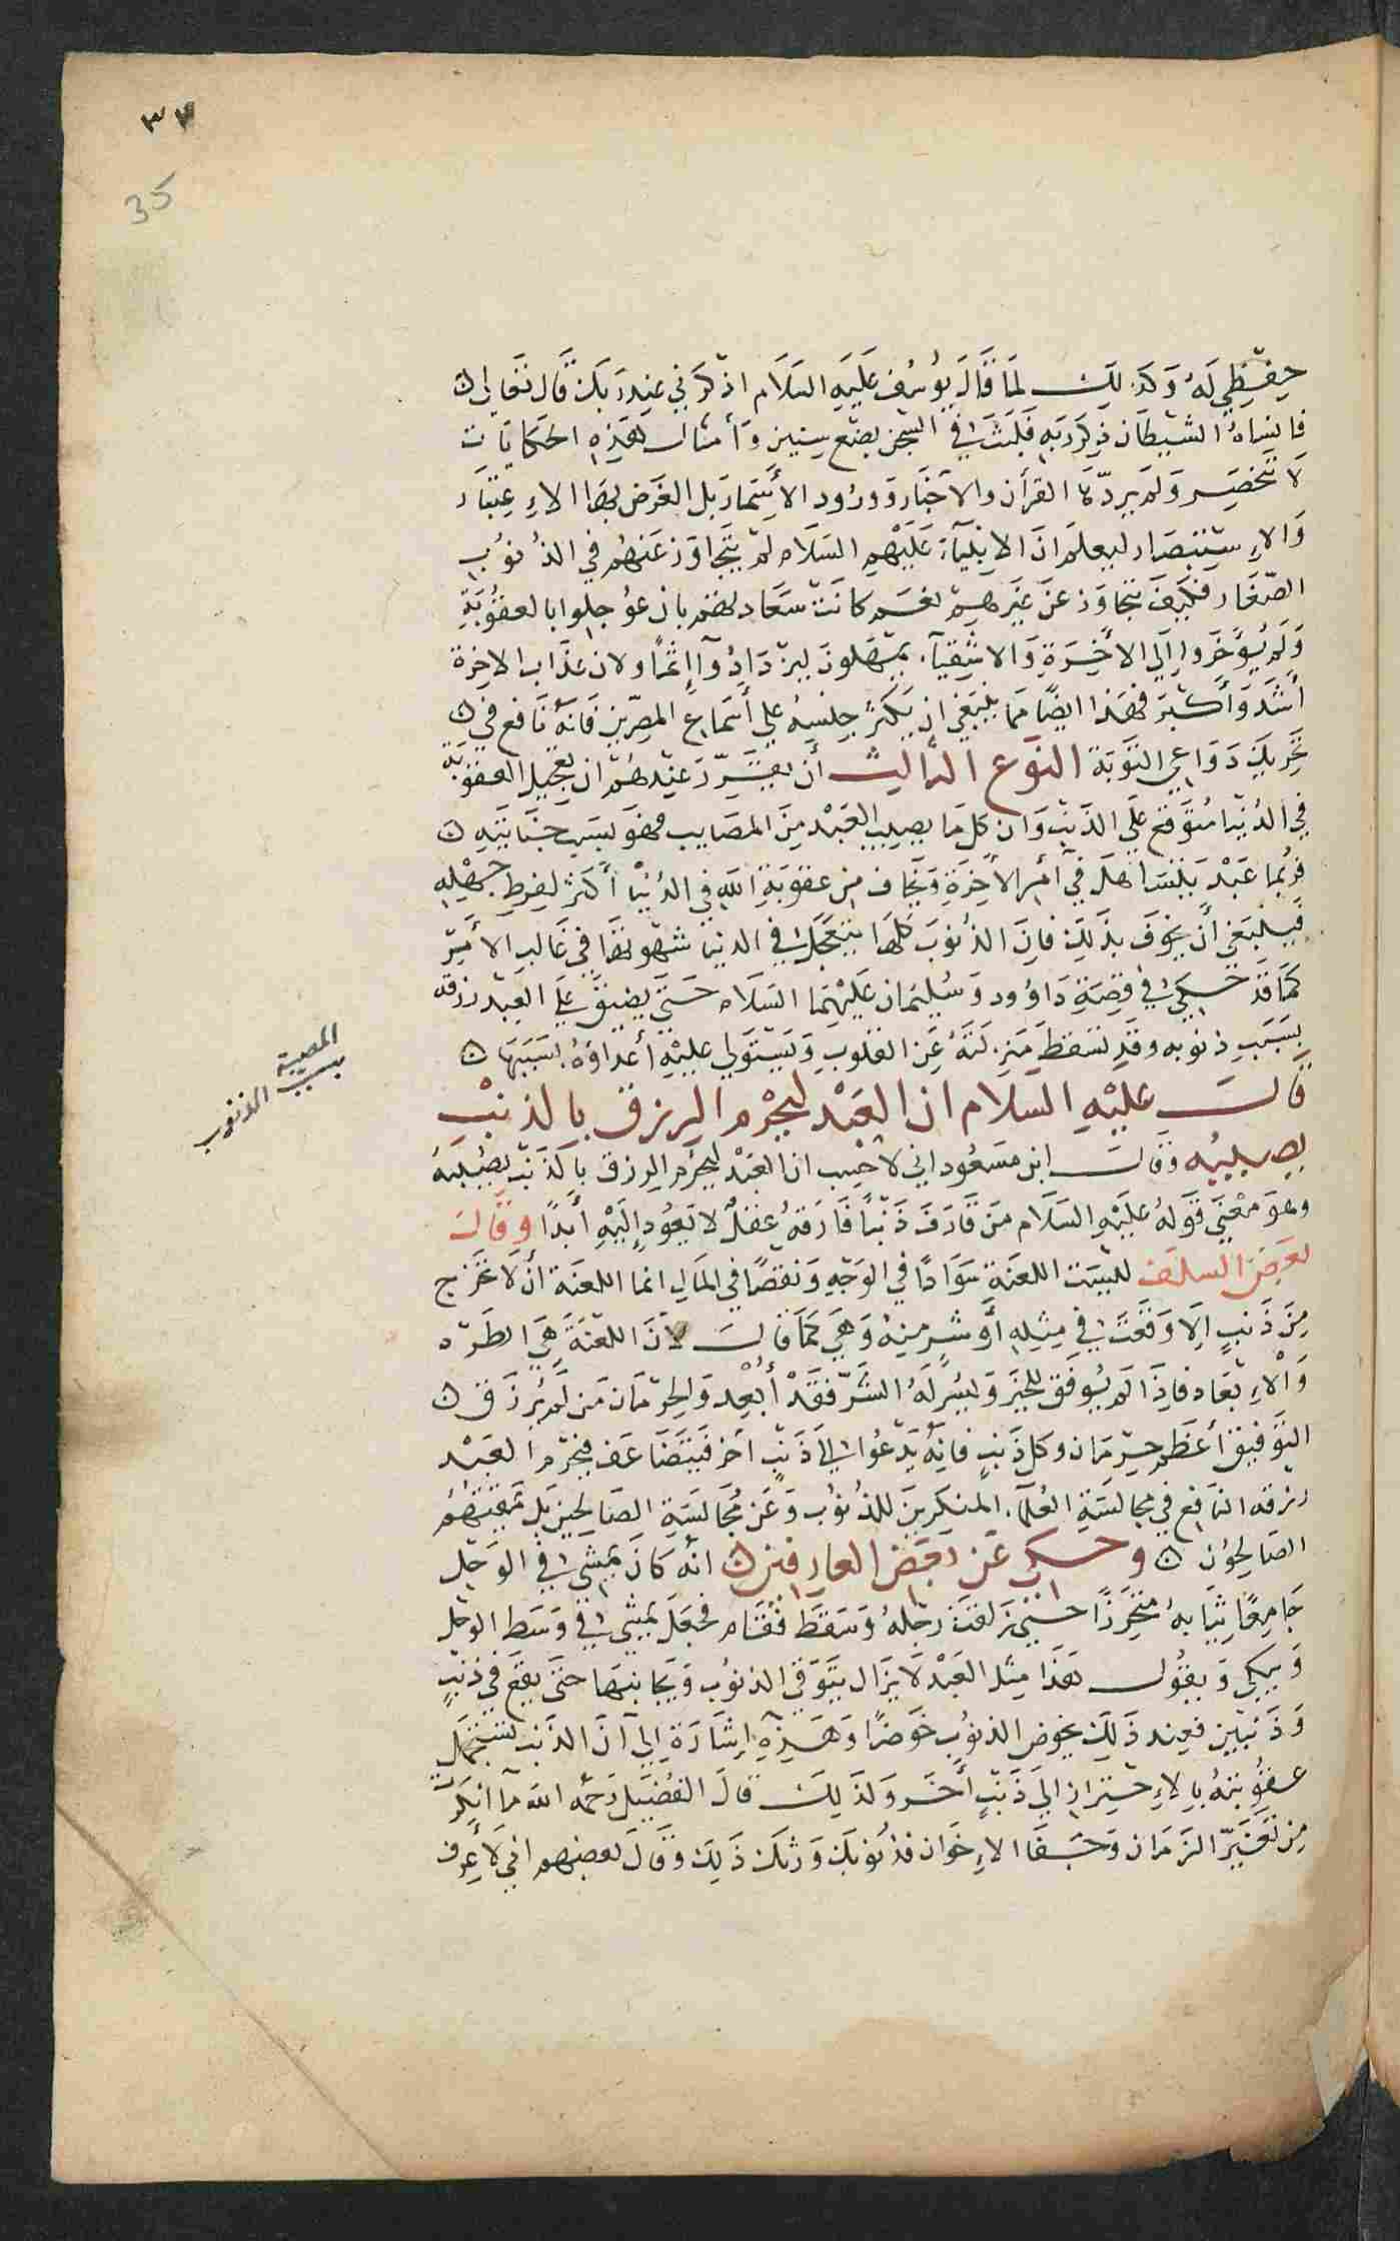 ٣٤
35
حفظي له وكذلك لما قال يوسف عليه السلام اذكرني عند ربك قال تعالى
فانساه الشيطان ذكر ربه فلبث في السجن بضع سنين وأمثال هذه الحكايات
لا تنحصر ولم يرد بها القرأن والاخبار ورود الأسمار بل الغرض بها الاعتبار
والاستبصار ليعلم ان الانبيآء عليهم السلام لم يتجاوز عنهم في الذنوب
الصغار فكيف يتجاوز عن غيرهم نعم كانت سعادتهم بان عوجلوا بالعقوبة
ولم يؤخروا الي الأخرة والاشقيآء يمهلون ليزدادوآ إثمًا ولان عذاب الاخرة
أشد وأكبر فهذا ايضًا مما ينبغي ان يكثر جنسه علي أسماع المصرين فانه نافع في
تحريك دواعي التوبة النوع الثالث أن يقرر عندهم ان تعجيل العقوبة
في الدنيا متوقع علي الذنب وان كل ما يصيب العبد من المصايب فهو بسبب جنايته
فربما عبد يتساهل في أمر الأخرة ويخاف من عقوبة الله في الدنيا أكثر لفرط جهله
فينبغي أن يخوف بذلك فان الذنوب كلها يتعجل في الدنيا شؤمها في غالب الأمر
كما قد حكي في قصة داوود وسليمان عليهما السلام حتي يضيق علي العبد رزقه
بسبب ذنوبه وقد تسقط منزلته عن القلوب ويستولي عليه أعداؤه بسببها
قال عليه السلام ان العبد ليحرم الرزق بالذنب
يصيبه وقال ابن مسعود اني لاحسب ان العبد ليحرم الرزق بالذنب يصيبه
وهو معني قوله عليه السلام من قارف ذنبًا فارقه عقل لا يعود إليه أبدًا وقال
بعض السلف لليست اللعنة سوادًا في الوجه ونقصًا في المال انما اللعنة أن لا تخرج
من ذنب إلا وقعت في مثله أو شر منه وهي كما قال لأن اللعنة هي الطرد
والإبعاد فاذا لم يوفق للخير ويسر له الشر فقد أبعد والحرمان من لم يرزق
التوفيق أعظم حرمان وكل ذنب فانه يدعوا الي ذنب أخر فيتضاعف فيحرم العبد
رزقه النافع في مجالسة العلماء المنكرين للذنوب وعن مجالسة الصالحين بل يمقتهم
الصالحون وحكي عن بعض العارفين انه كان يمشي في الوحل
جامعًا ثيابه متحرزًا حتي زلقت رجله وسقط فقام فجعل يمشي في وسط الوحل
ويبكي ويقول هذا مثل العبد لا يزال يتوقي الذنوب ويجانبها حتي يقع في ذنب
وذنبين فعند ذلك يخوض الذنوب خوضًا وهذه إشارة إلي أن الذنب تتعجل
عقوبته بالاحتراز الي ذنب أخر ولذلك قال الفضيل رحمه الله ما انكرت
من تغير الزمان وجفا الاخوان فذنوبك ورثك ذلك وقال بعضهم اني لأعرف
المصيبة
بسبب الذنوب